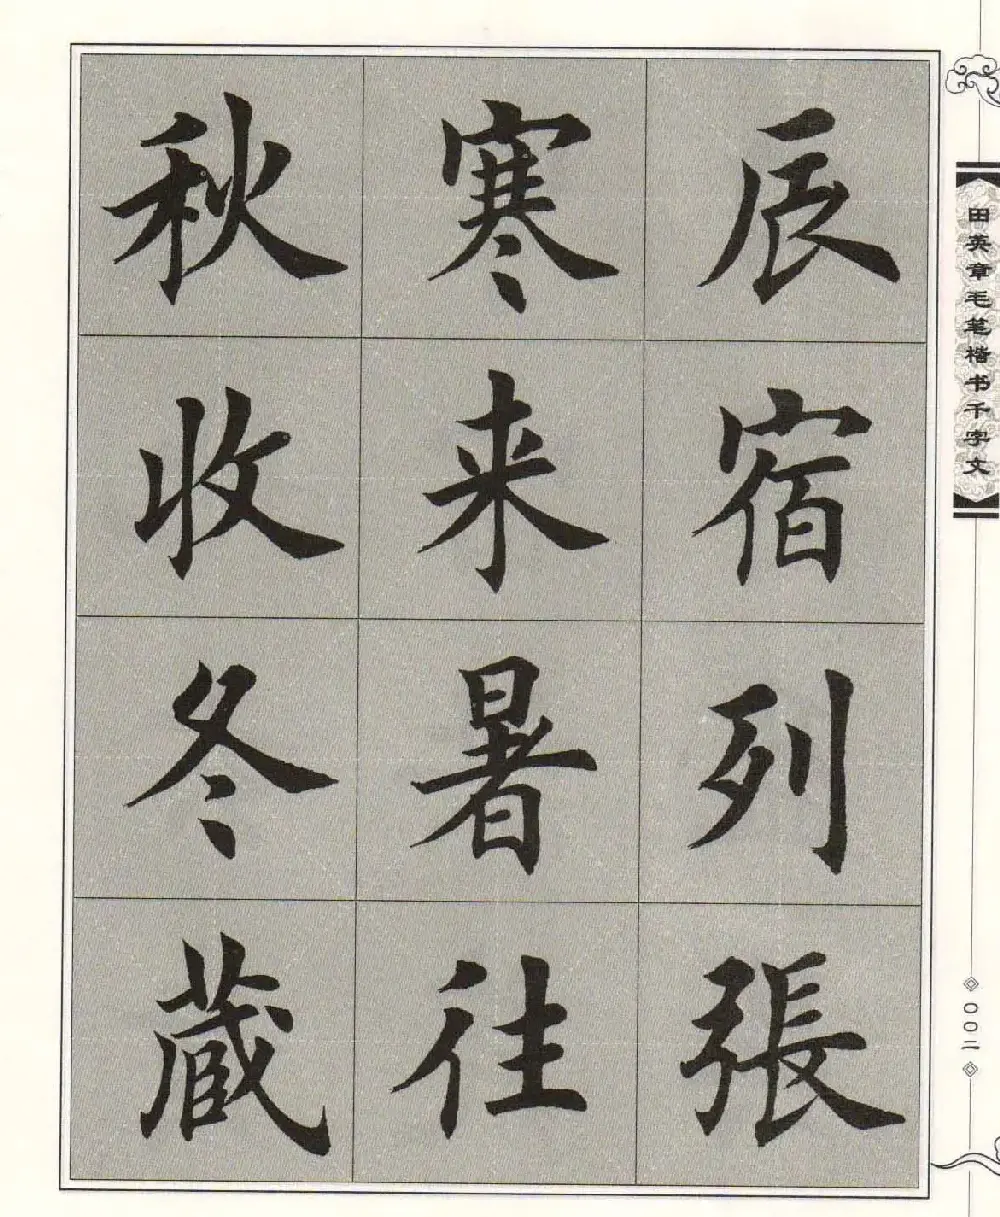 辰宿列張
寒来暑往
秋收冬蔵
田英章毛笔楷书千字文
〇〇二